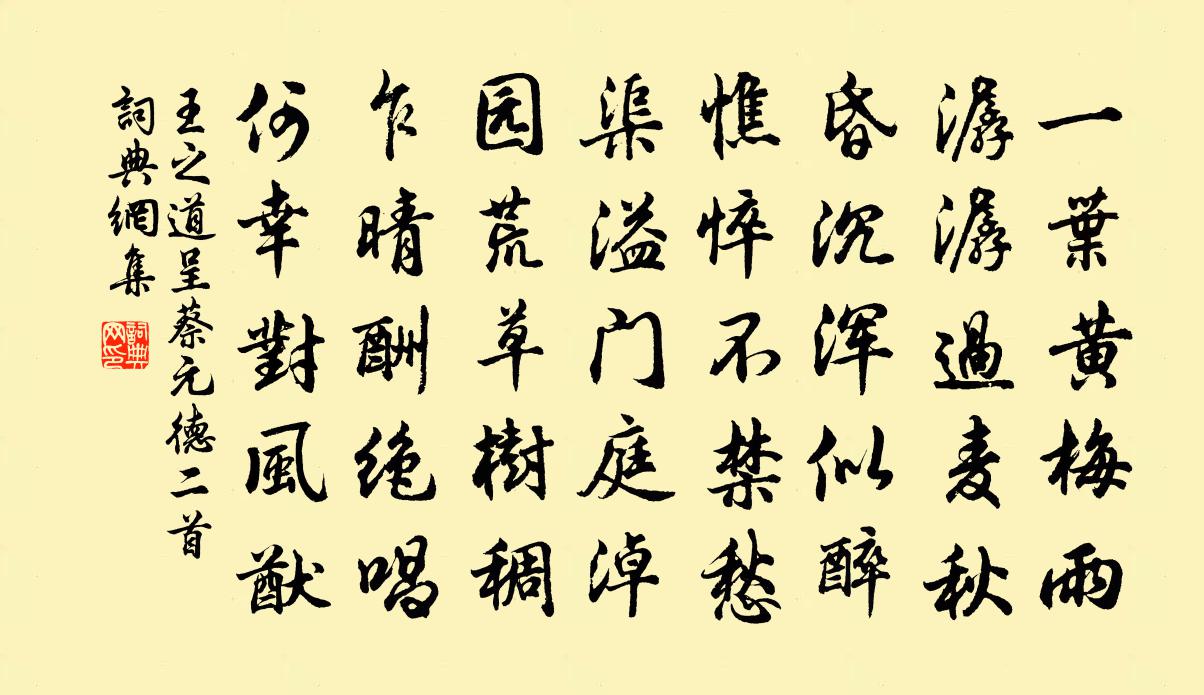 一葉黄梅雨
潺潺過麦秋
昏沉浑似醉
憔悴不禁愁
渠溢门庭淖
园荒草樹稠
乍晴酬绝唱
何幸對風猷
王之道呈蔡元德二首
詞典網集
詞典网印